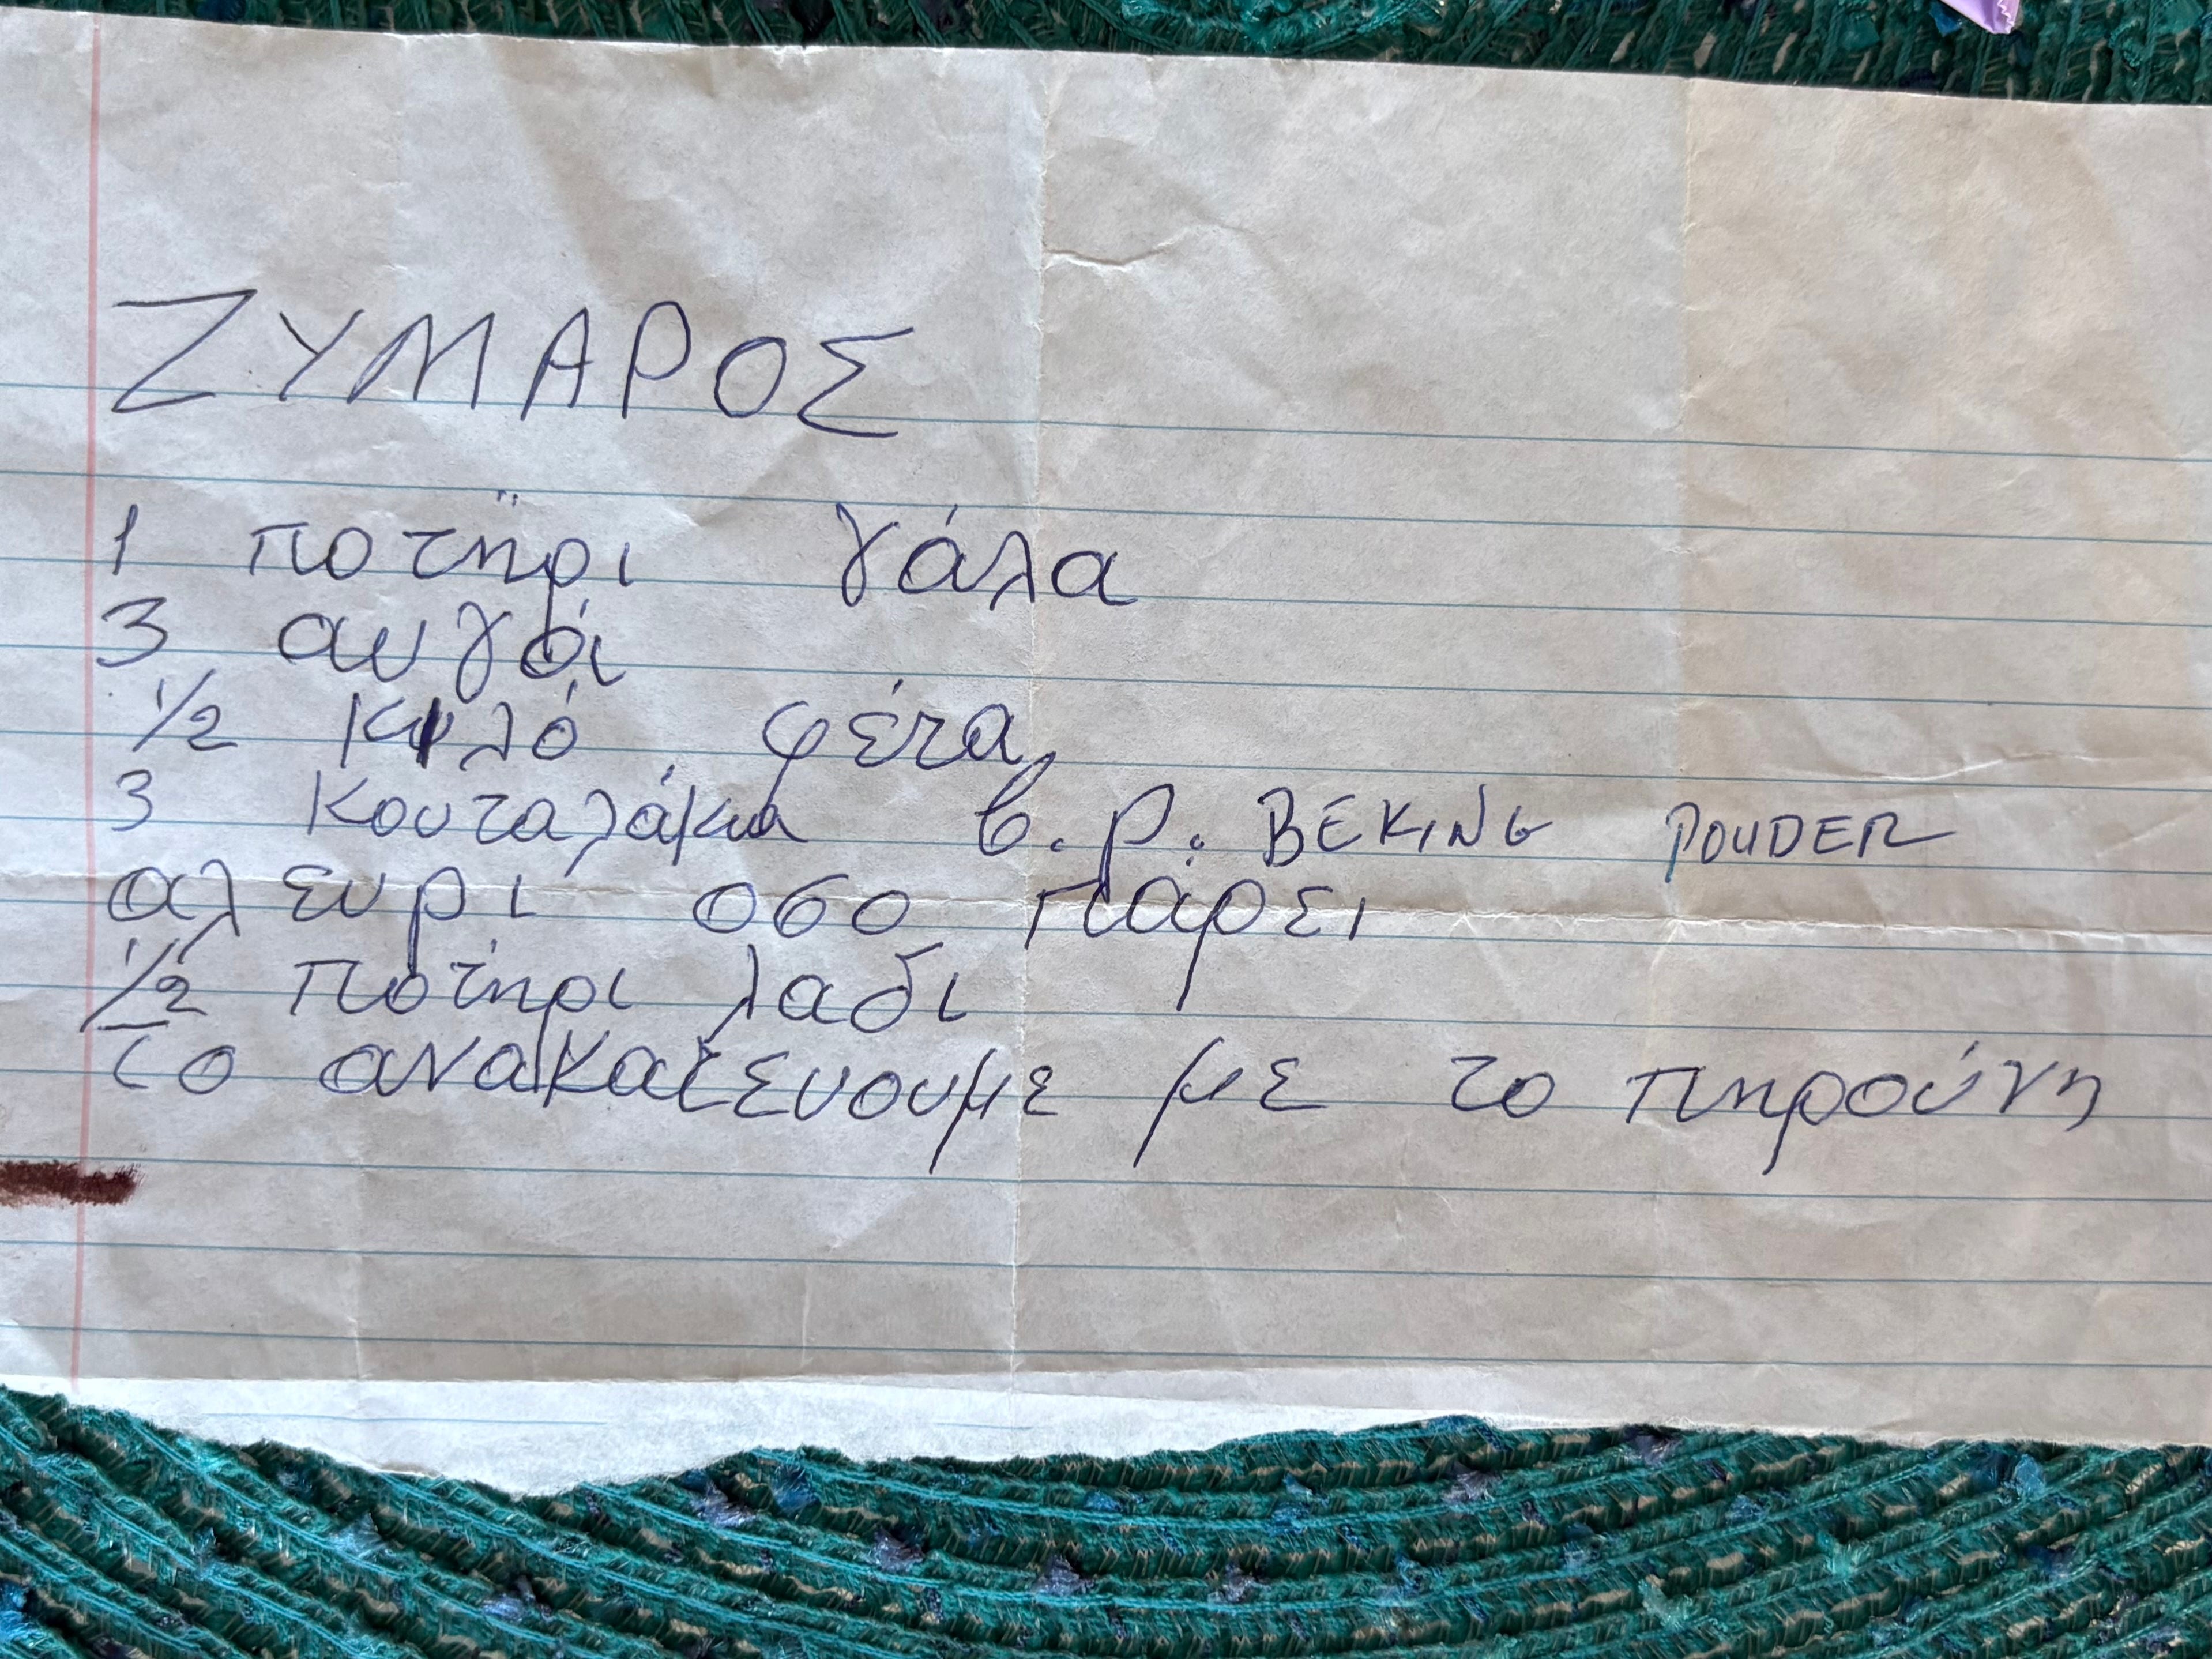 ΖΥΜΑΡΟΣ
1 ποτήρι γάλα
3 αυγόι
1/2 Κιλό φέτα
3 Κουταλάκια b.p. BEKING POUDER
αλευρι οσο παρει
1/2 ποτήρι λαδι
το ανακατευουμε με το πηρούνη